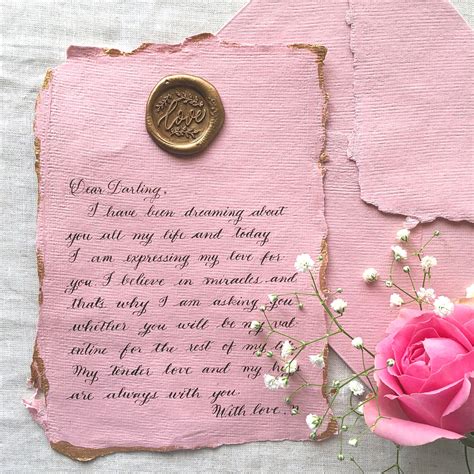 love
Dear Darling,
I have been dreaming about
you all my life and today
I am expressing my love for
you. I believe in miracles and
thats why I am asking you
whether you will be my val-
entine for the rest of my
My tender love and my
are always with you.
With love,